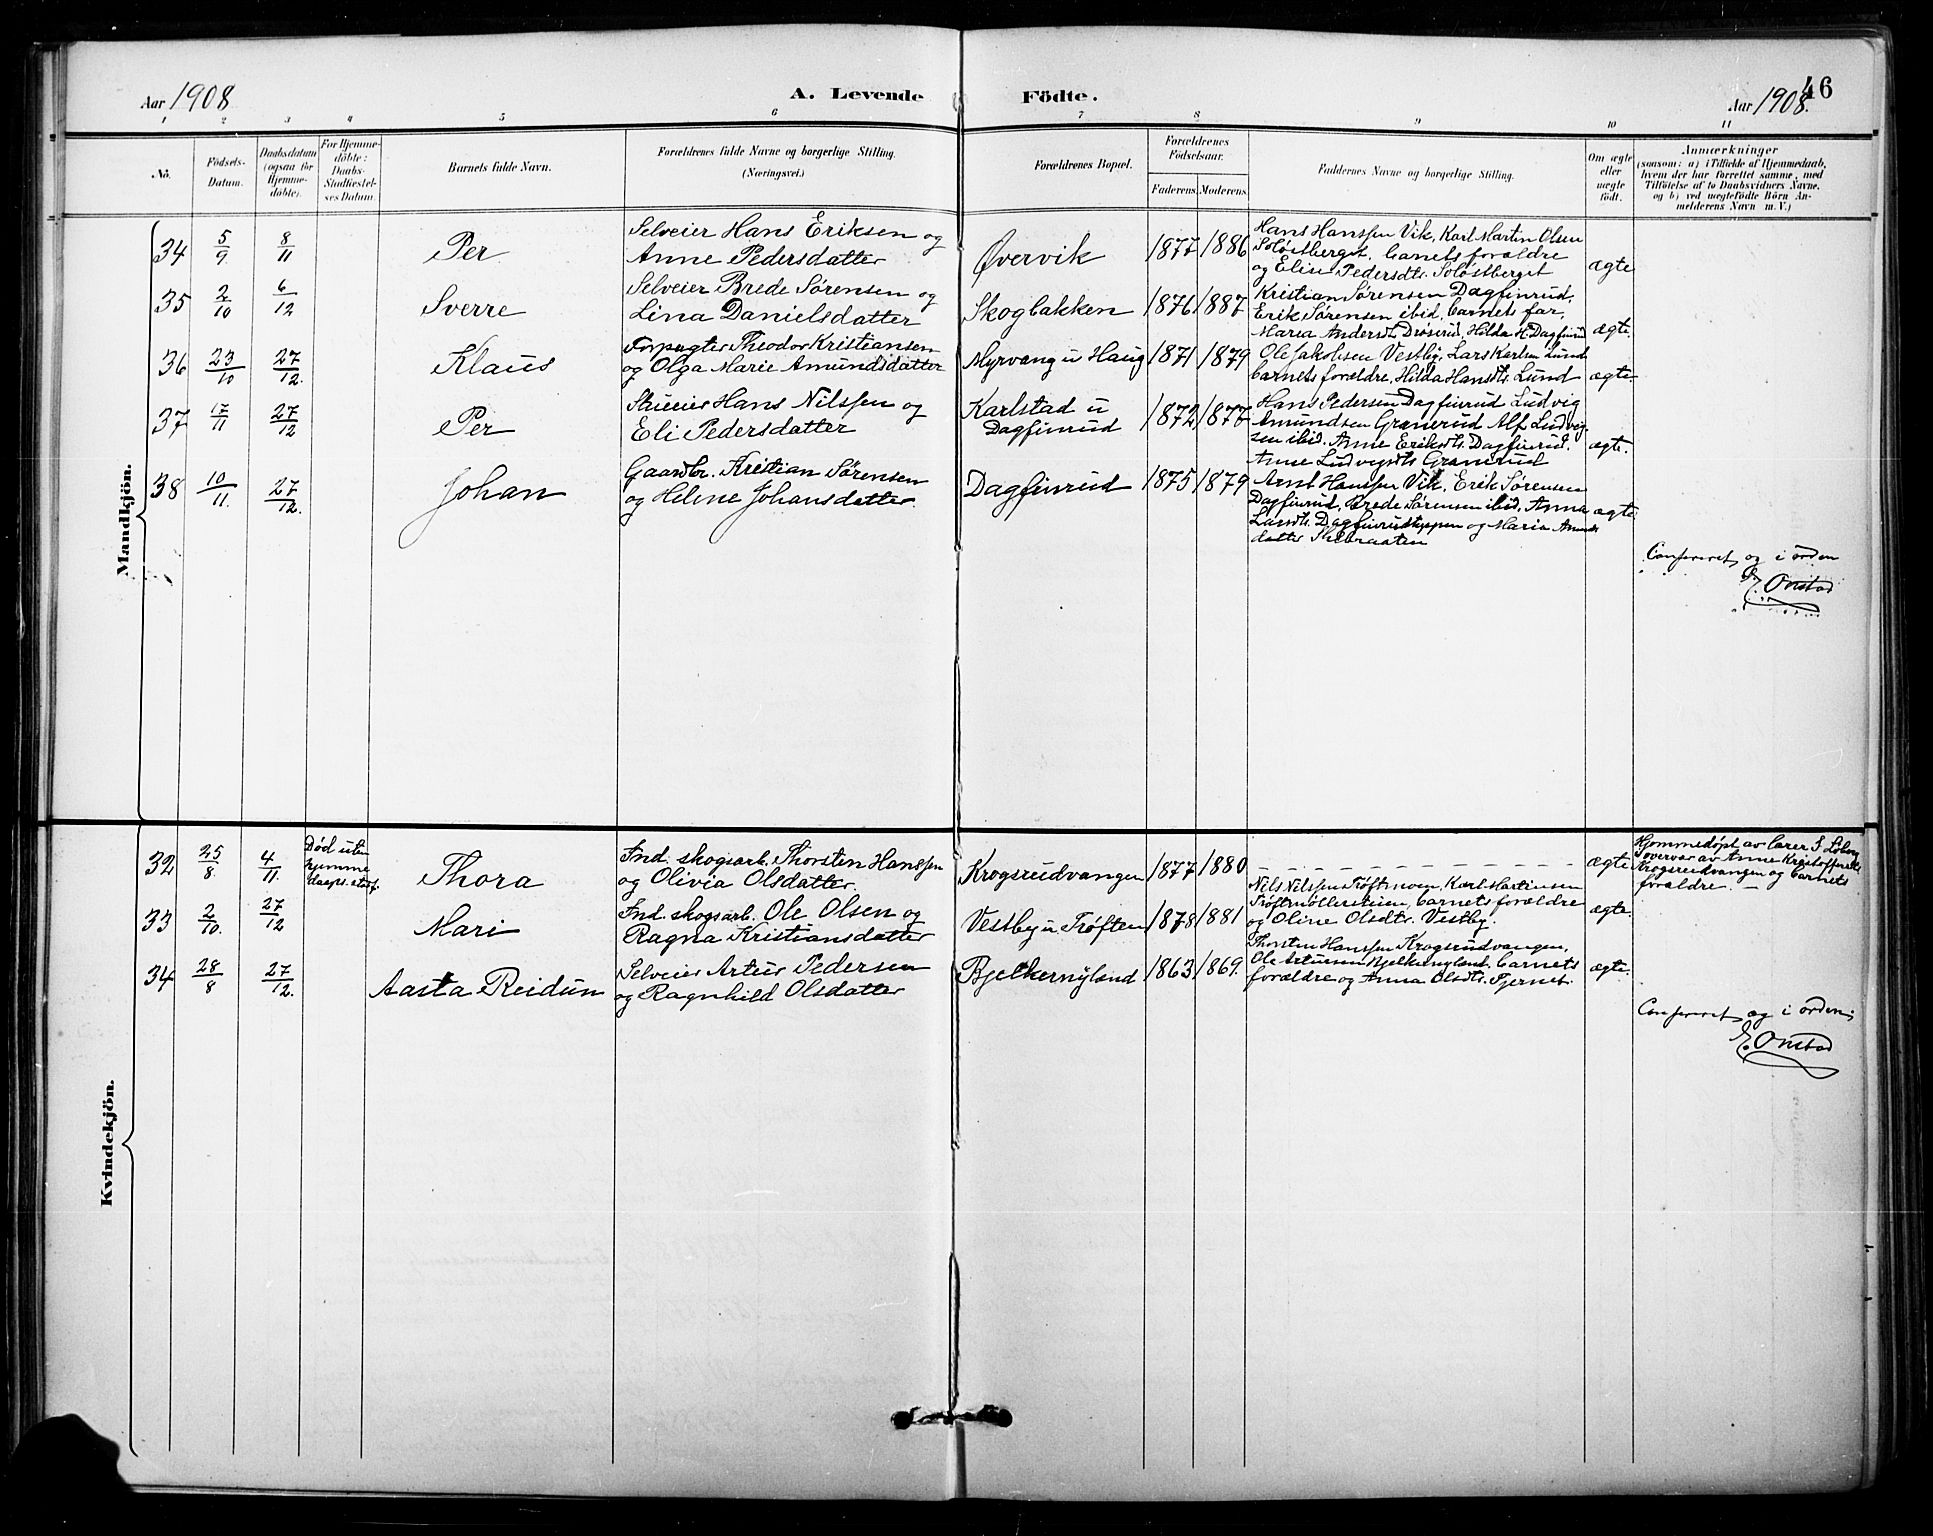 Aar 1908
A. Levende Födte.
Aar 1908.
46
1 2 3 4 5 6 7 8 9 10 11
No.
Födsels-
Datum.
Daabsdatum
(ogsaa for
Hjemme-
döbte).
For Hjemme-
döbte:
Daabs-
Stadfæstel-
ses Datum.
Barnets fulde Navn.
Forældrenes fulde Navne og borgerlige Stilling.
(Næringsvei.)
Forældrenes Bopæl.
Forældrenes
Födselsaar.
Faderens. Moderens.
Faddernes Navne og borgerlige Stilling.
Om ægte
eller
uægte
födt.
Anmærkninger
(saasom: a) i Tilfælde af Hjemmedaab,
hvem der har forrettet samme, med
Tilföielse af to Daabsvidners Navne,
og b) ved uægtefödte Börn An-
melderens Navn m. V.)
Mandkjön.
34 5/9 8/11 Per
Selveier Hans Eriksen og
Anne Pedersdatter
Øvervik 1877 1886
Hans Hanssen Vik, Karl Martin Olsen
Soløstberget, barnets forældre
og Elise Pedersdt. Soløstberget
ægte
35 2/10 6/12 Sverre
Selveier Brede Sørensen og
Lina Danielsdatter
Skogbakken 1876 1887
Kristian Sørensen Dagfinrud,
Erik Sørensen ibid, barnets far,
Maria Andersdt. Drøserud, Hilda H. Dagfinrud
ægte.
36 23/10 27/12. Klaus
Forpagter Theodor Kristiansen
og Olga Marie Amundsdatter
Myrvang u Haug 1871 1879
Ole Jakobsen Vestby, Lars Karlsen Lund
barnets forældre, Hilda Hansdt. Lund
ægte.
37 17/11 27/12 Per
Selveier Hans Nilssen og
Eli Pedersdatter
Karlstad u
Dagfinrud
1872 1877
Hans Pedersen Dagfinrud Ludvig
Amundsen Granerud Alf Ludvig-
sen ibid. Anne Eriksdt. Dagfinrud.
Anne Ludvigsdt. Granerud
ægte.
38 10/11. 27/12. Johan
Gaardbr. Kristian Sørensen
og Helene Johansdatter.
Dagfinrud 1875 1879
Arnt Hanssen Vik, Erik Sørensen
Dagfinrud, Brede Sørensen ibid, Anna
Larsdt. Dagfinrudteppen og Maria Amunds
datter
ægte.
Confereret og i orden
E. Onstad
Kvindekjön.
32 25/8 4/11.
Død uten
hjemme
daaps. stadf.
Thora
Ind. skogsarb. Thorsten Hanssen
og Olivia Olsdatter.
Krogsrudvangen 1877 1880
ægte
Hjemmedøpt av lærer
overvær av Anne Kristoffersdt.
Krogsrudvangen og barnets
forældre. —
33 2/10. 27/12 Mari
Ind. skogsarb. Ole Olsen og
Ragna Kristiansdatter
Vestby u. Tøften 1878 1881
Nils Nilssen Tøftmoen, Karl Martinsen
Tøftmøllersteien, barnets forældre
og Oline Olsdt. Vestby.
ægte.
34 28/8 27/12. Aasta Reidun
Selveier Artur Pedersen
og Ragnhild Olsdatter
Bjelkernyland 1863 1869.
Thorsten Hanssen Krogsrudvangen,
Ole Artursen Bjelkernyland. barnets
forældre og Anna Olsdt. Tjernet.
ægte.
Confereret og i orden;
E. Onstad